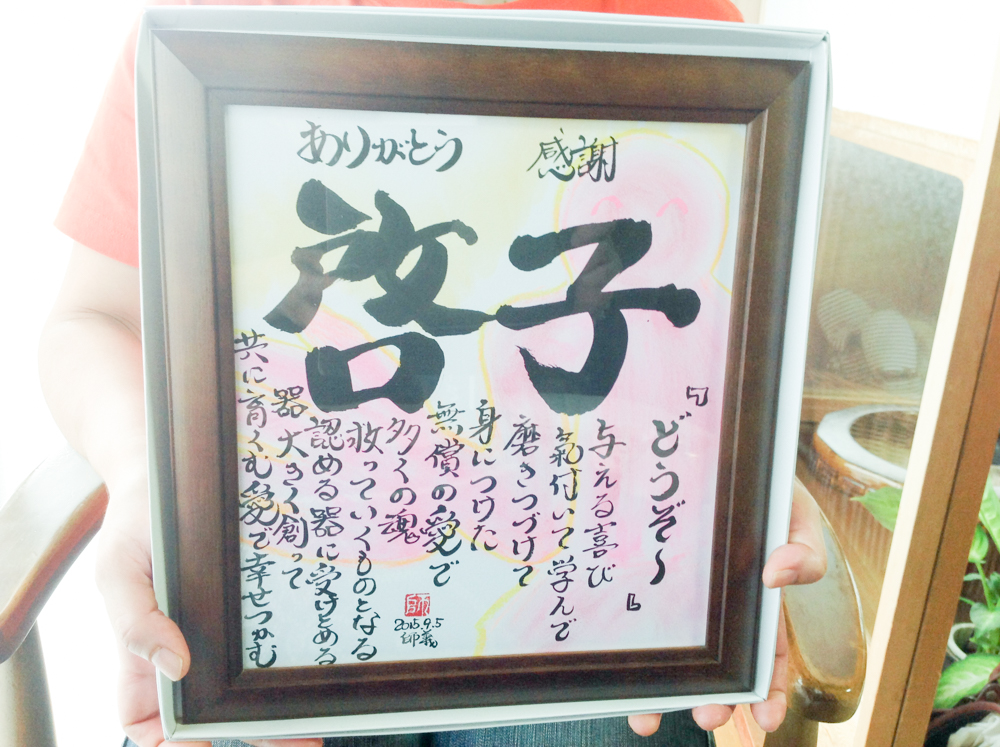 感謝
ありがとう
啓子
『どうぞ〜』
与える喜び
氣付いて学んで
磨きつづけて
身につけた
無償の愛で
多くの魂
救っていくものとなる
認める器に受けとめる
器大きく創って
共に育くむ愛で幸せつかむ
師
2015.9.5